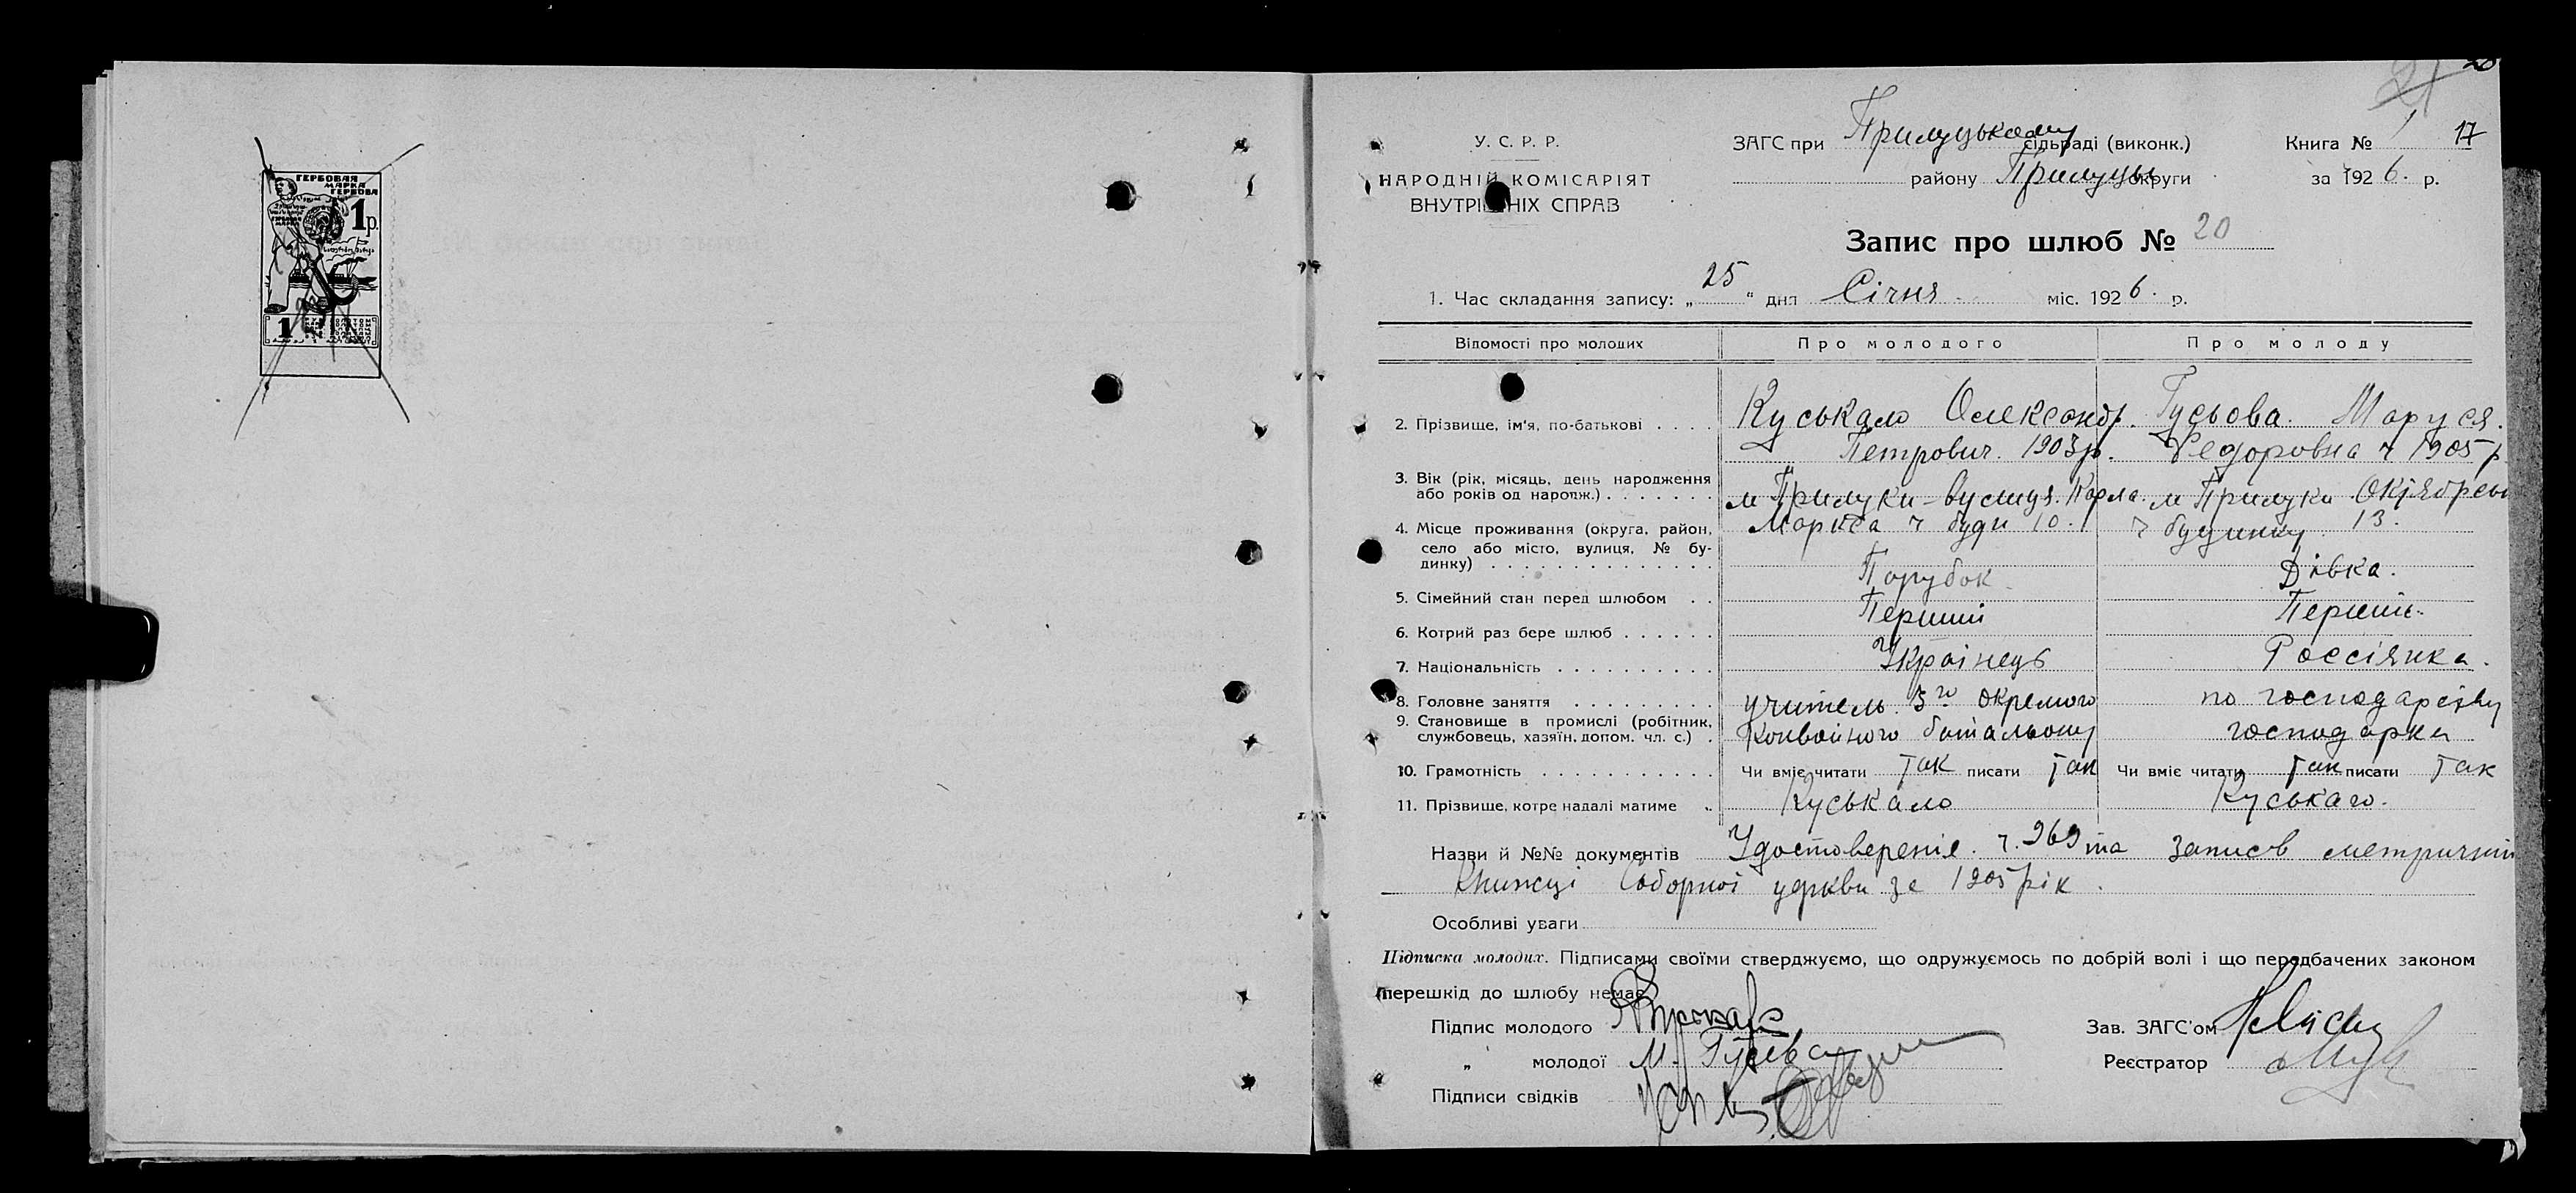 ГЕРБОВАЯ
МАРКА
ГЕРБОВА
1 р.
1
21 20
У. С. Р. Р.
НАРОДНІЙ КОМІСАРІЯТ
ВНУТРІШНІХ СПРАВ
ЗАГС при Прилуцькому сільраді (виконк.)
району Прилуцьк округи
Книга № 1 17
за 1926. р.
Запис про шлюб № 20
1. Час складання запису: „25" дня Січня міс. 1926. р.
Відомості про молодих Про молодого Про молоду
2. Прізвище, ім'я, по-батькові Куськало Олександр. Гусьова. Маруся.
Петрович. 1903р. Федоровна ч 1905 р
3. Вік (рік, місяць, день народження
або років од народж.) м Прилуки - вулиця. Карла. м Прилуки Октябрсь
4. Місце проживання (округа, район, Маркса ч буди 10. ч будинку 13.
село або місто, вулиця, № бу-
динку)
5. Сімейний стан перед шлюбом Парубок Дівка.
6. Котрий раз бере шлюб Перший Перший
7. Національність Українець Россіянка.
8. Головне заняття учитель. 3го окремого по господарству
9. Становище в промислі (робітник,
службовець, хазяїн, допом. чл. с.) Конвойного батальону господарка
10. Грамотність Чи вміє читати так писати так Чи вміє читати так писати так
11. Прізвище, котре надалі матиме Куськало Куськало.
Назви й №№ документів Удостовереніє. ч. 969 та записв метричній
Книжці Соборної церкви за 1905 рік.
Особливі уваги
Підписка молодих. Підписами своїми стверджуємо, що одружуємось по добрій волі і що передбачених законом
перешкід до шлюбу немає
Підпис молодого
„ молодої М. Гусева
Підписи свідків
Зав. ЗАГС'ом
Реєстратор